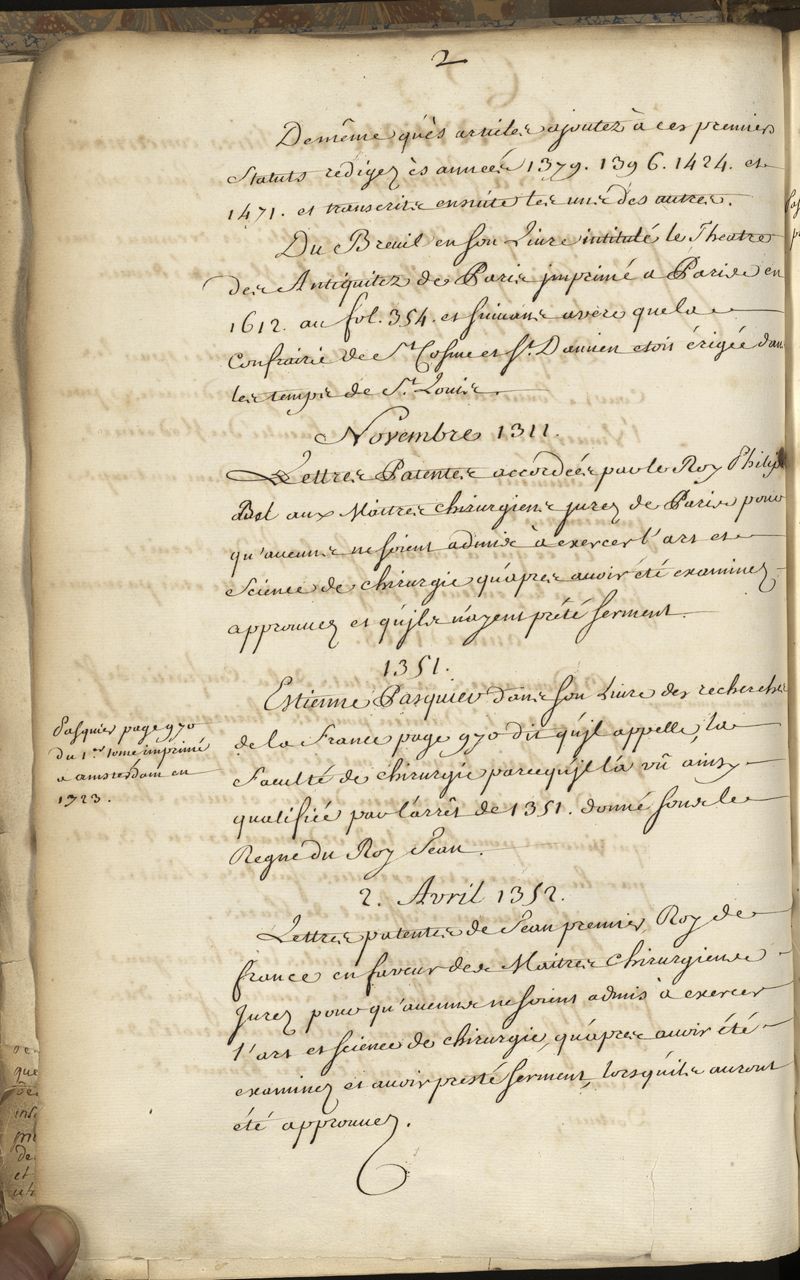 2
De même qu'ès articles ajoutez à ces premiers
Statuts rédigez ès années 1379. 1396. 1424. et
1471. et transcrits ensuite les uns des autres.
Du Breuil en son Livre intitulé le Theatre
des Antiquitez de Paris jmprimé a Paris en
1612. au fol. 354. et suivans avere que la
Confrairie de St. Cosme et St. Damien etoit érigée dans
les temps de St. Louis.
Novembre 1311.
Lettres Patentes accordées par le Roy Philippe
Bel aux Maitres chirurgiens jurez de Paris pour
qu'aucuns ne soient admis à exercer l'art et
Science de chirurgie qu'apres avoir été examinez
approuvez et qu'jls n'ayent prété serment.
1351.
Estienne Pasquier dans son Livre des recherches
de la France page 970 dit qu'jl appelle la
Faculté de chirurgie parcequ'jl l'a vû ainsy
qualifiée par l'arrêt de 1351. donné sous le
Regne du Roy Jean.
Pasquier page 970
du 1.er tome imprimé
a amsterdam en
1723.
2. Avril 1352.
Lettres patentes de Jean premier, Roy de
france en faveur des Maitres chirurgiens
Jurez pour qu'aucuns ne soient admis à exercer
l'art et science de chirurgie, qu'apres avoir été
examinez et avoir presté serment, lorsqu'ils auront
été approuvez.